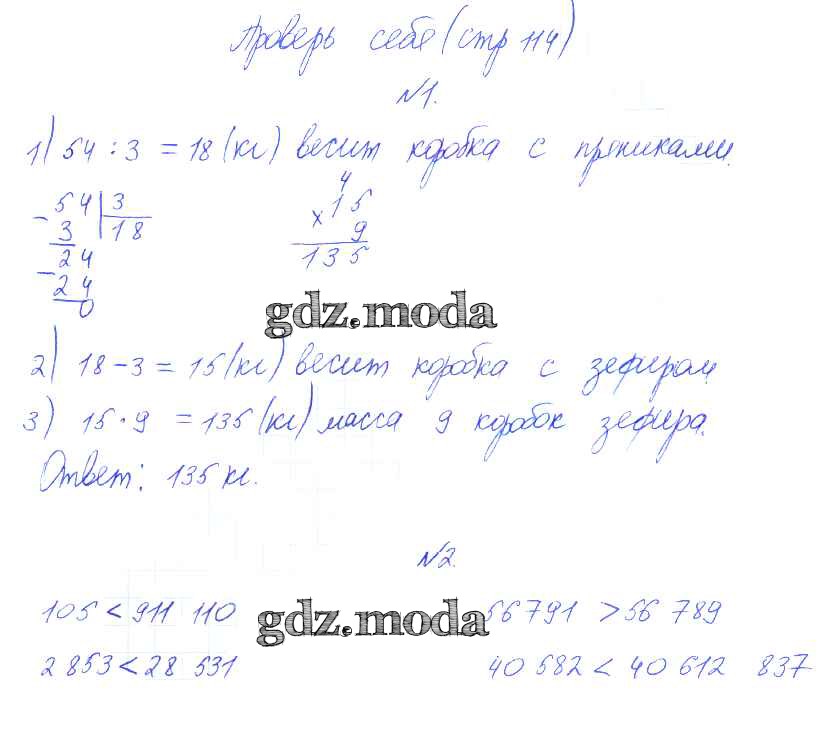 Проверь себе (стр 114)
№1.
1) 54 : 3 = 18 (кг) весит коробка с пряниками.
54 3 4
- 3 18 × 15
24 9
- 24 135
0
gdz.moda
2) 18 - 3 = 15 (кг) весит коробка с зефиром
3) 15 · 9 = 135 (кг) масса 9 коробок зефира.
Ответ: 135 кг.
№2.
105 < 911 110 56 791 > 56 789
gdz.moda
2 853 < 28 531 40 582 < 40 612 837